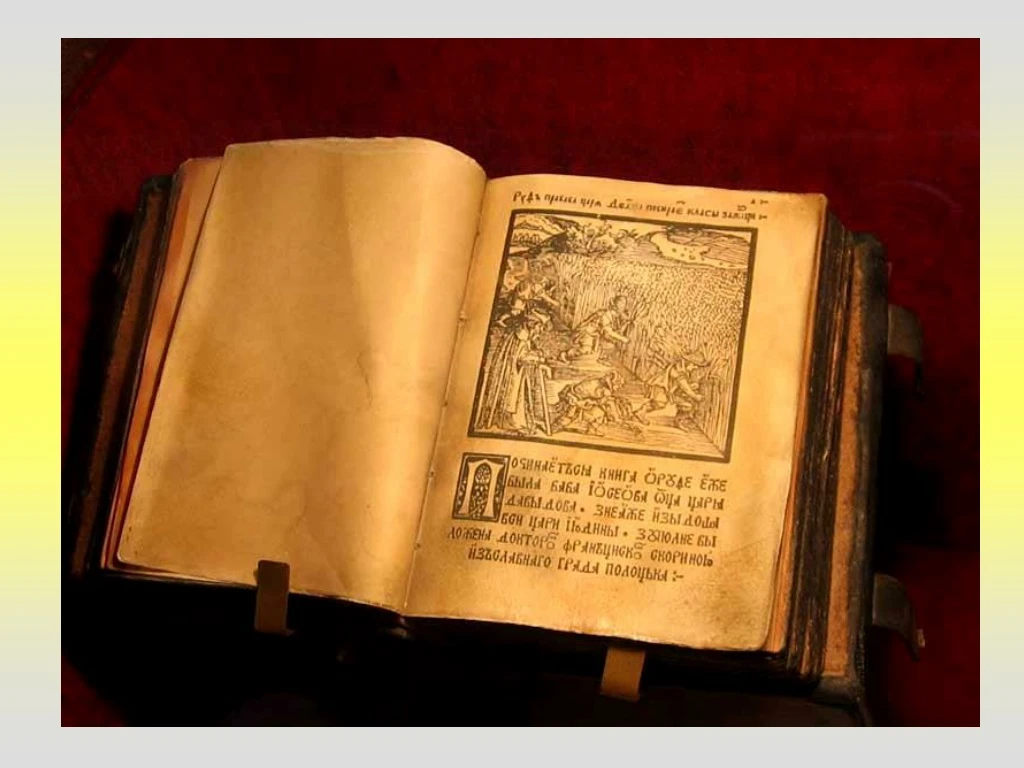 Руѳь прабаба царѧ Двда посирае҃ класы зажаты :~
Починаетьсѧ книга Ѻруѳе еже
была баба Іѡсеѳова ѿца царѧ
давыдова · знеѧже изыдоша
вси цари июдины · зуполне вы
ложена докторо҃ франъциско҃ скориною
изъславнаго града полоцька :~